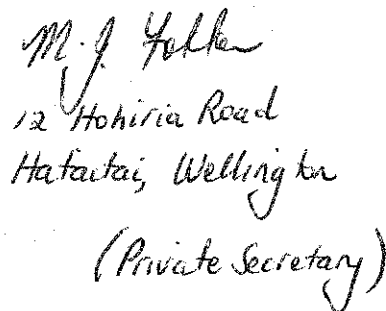 M. J.
12 Hohiria Road
Hataitai, Wellington
(Private Secretary)